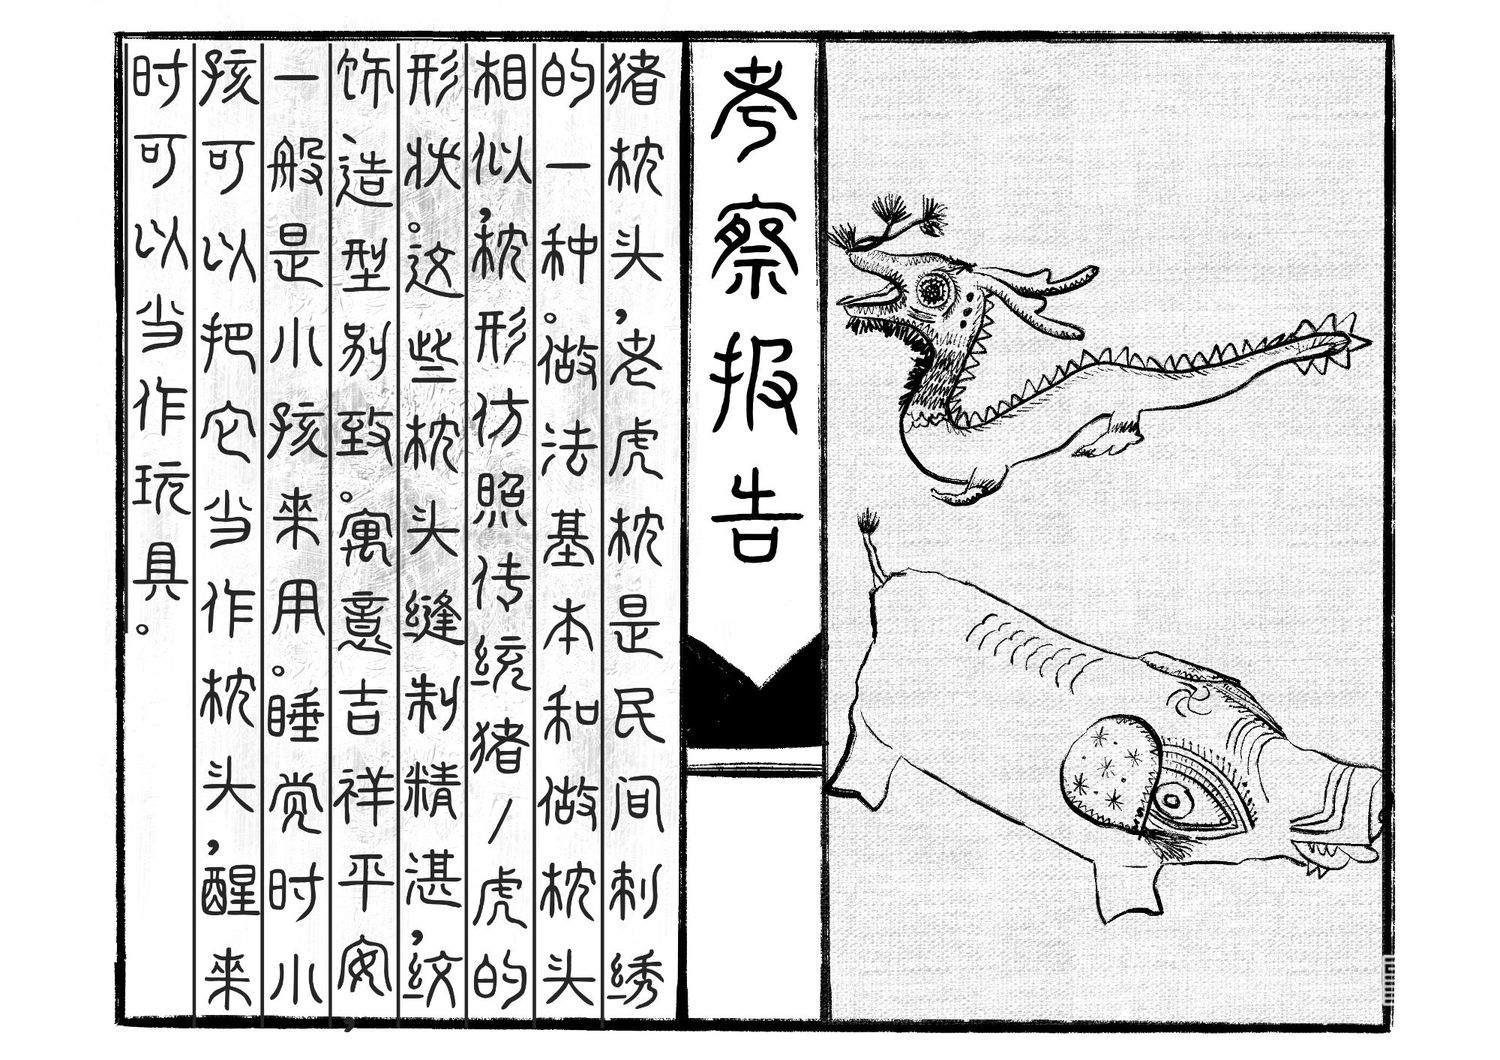 考察报告
猪枕头，老虎枕是民间刺绣
的一种。做法基本和做枕头
相似，枕形仿照传统猪/虎的
形状。这些枕头缝制精湛，纹
饰造型别致。寓意吉祥平安，
一般是小孩来用。睡觉时小
孩可以把它当作枕头，醒来
时可以当作玩具。